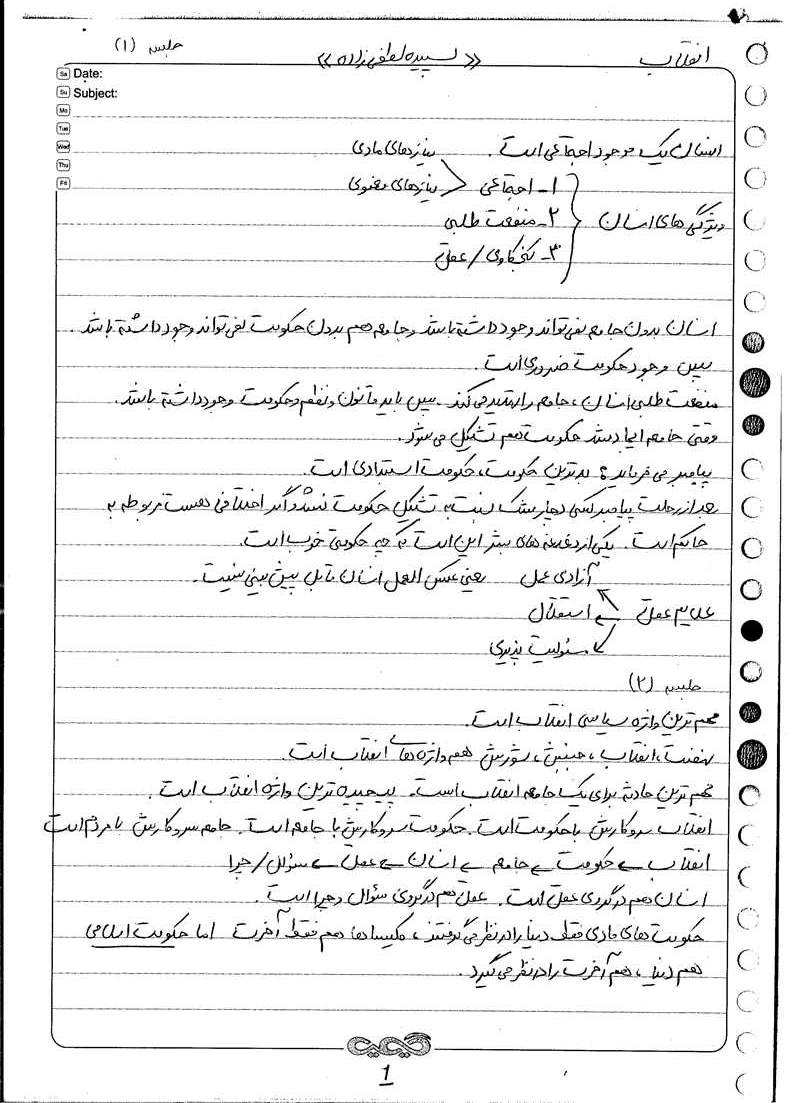 انقلاب « سپیده لطفی زاده » جلسه (۱)
Sa Date:
Su Subject:
Mo
Tue
Wed
Thu
Fri
انسان یک موجود اجتماعی است. نیازهای مادی
ویژگی های انسان ۱- اجتماعی نیازهای معنوی
۲- منفعت طلبی
۳- کنجکاوی / عقلی
انسان بدون جامعه نمی تواند وجود داشته باشد و جامعه هم بدون حکومت نمی تواند وجود داشته باشد.
پس وجود حکومت ضروری است.
منفعت طلبی انسان، جامعه را تهدید می کند. پس باید قانون و نظم و حکومت وجود داشته باشد.
وقتی جامعه ایجاد شد حکومت هم تشکیل می شود.
پیامبر می فرماید: بدترین حکومت، حکومت استبدادی است.
بعد از رحلت پیامبر کسی دچار شک نسبت به تشکیل حکومت نشد و اگر اختلافی هست مربوط به
حاکم است. یکی از دغدغه های بشر این است که چه حکومتی خوب است.
آزادی عمل یعنی عکس العمل انسان قابل پیش بینی نیست.
علایم عقلی استقلال
مسئولیت پذیری
جلسه (۲)
مهم ترین واژه سیاسی انقلاب است.
نهضت، انقلاب، جنبش، شورش هم واژه های انقلاب است.
مهم ترین حادثه برای یک جامعه انقلاب است. پیچیده ترین واژه انقلاب است.
انقلاب سروکارش با حکومت است. حکومت سروکارش با جامعه است. جامعه سروکارش با مردم است
انقلاب حکومت جامعه انسان عقل سؤال / چرا
انسان هم در گروی عقل است. عقل هم در گروی سؤال و چرا است.
حکومت های مادی فقط دنیا را در نظر می گرفتند، کلیساها هم فقط آخرت اما حکومت اسلامی
هم دنیا، هم آخرت را در نظر می گیرد.
1